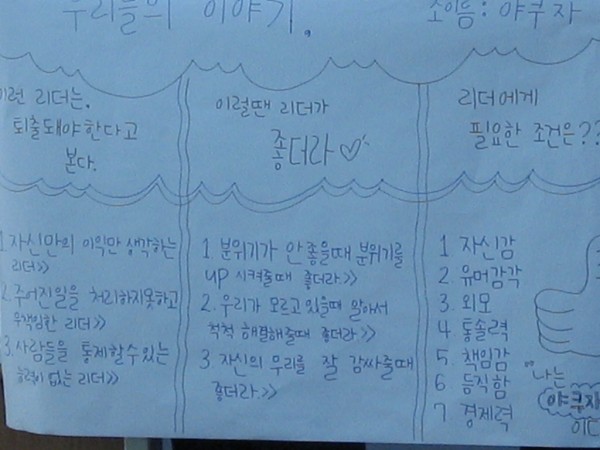 우리들의 이야기.
조이름: 야쿠자
이런 리더는.
퇴출돼야한다고
본다.
1. 자신만의 이익만 생각하는
리더>>
2. 주어진일을 처리하지못하고
무책임한 리더>>
3. 사람들을 통제할수있는
능력이 없는 리더>>
이럴땐 리더가
좋더라♡
1. 분위기가 안좋을때 분위기를
UP 시켜줄때 좋더라>>
2. 우리가 모르고있을때 알아서
척척 해결해줄때 좋더라>>
3 자신의 무리를 잘 감싸줄때
좋더라.>>
리더에게
필요한 조건은??
1 자신감
2. 유머감각
3. 외모
4. 통솔력
5. 책임감
6 듬직함
7 경제력
나는
야쿠자
이다